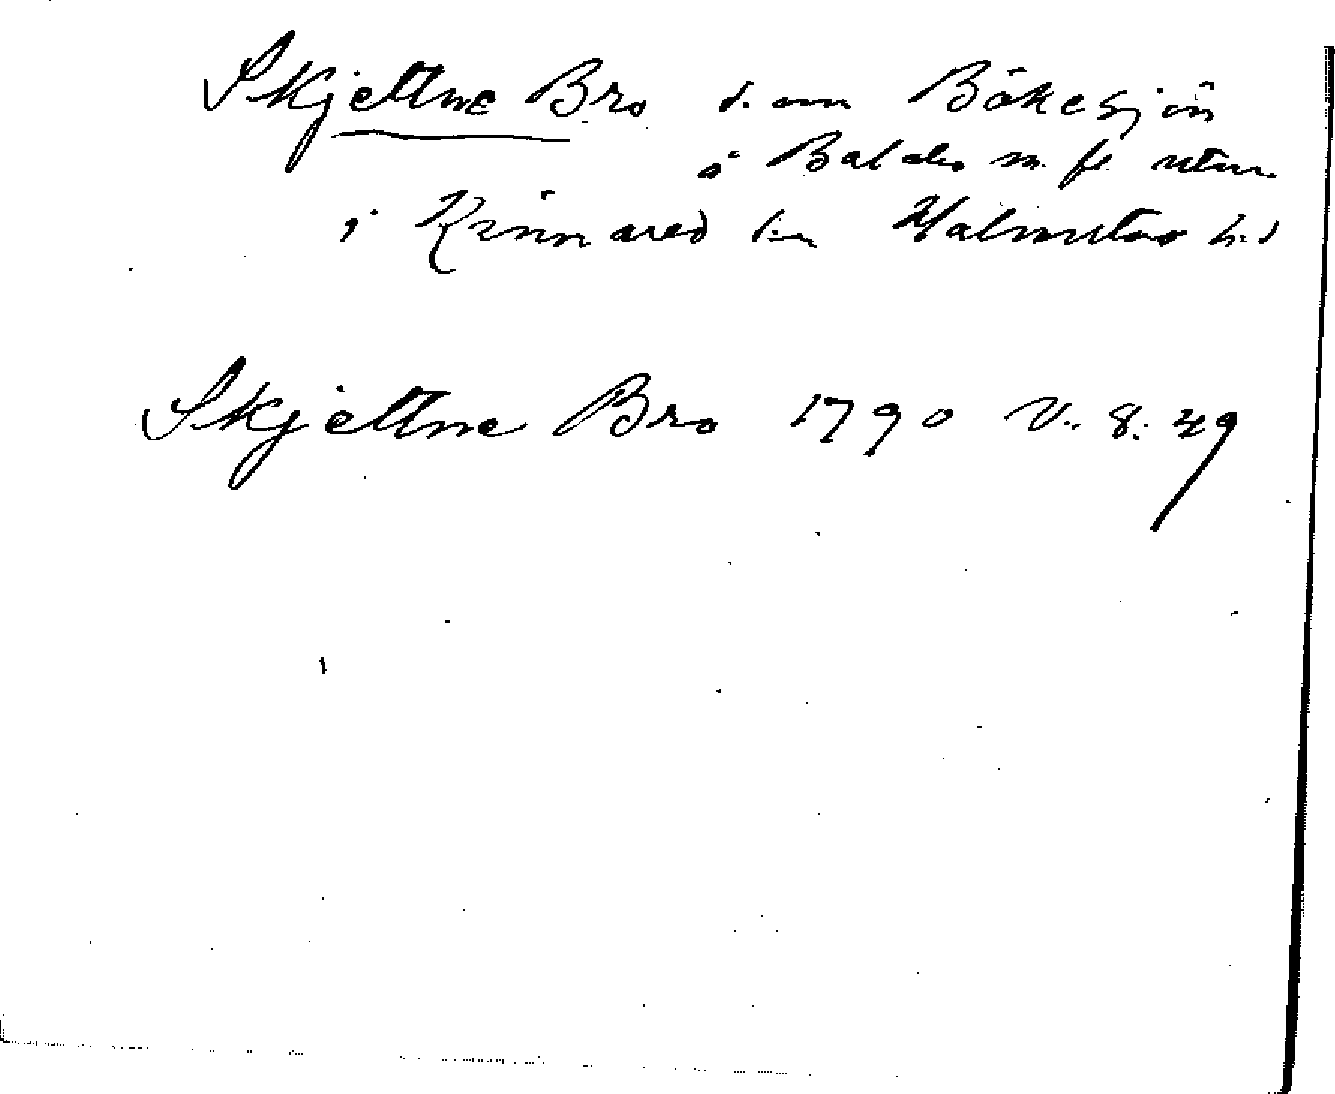 Skjettne Bro s. om Bökesjön
o Bal m. fl.
i Kinnared Halmstads hd
Skjettne Bro 1790 V. 8: 49